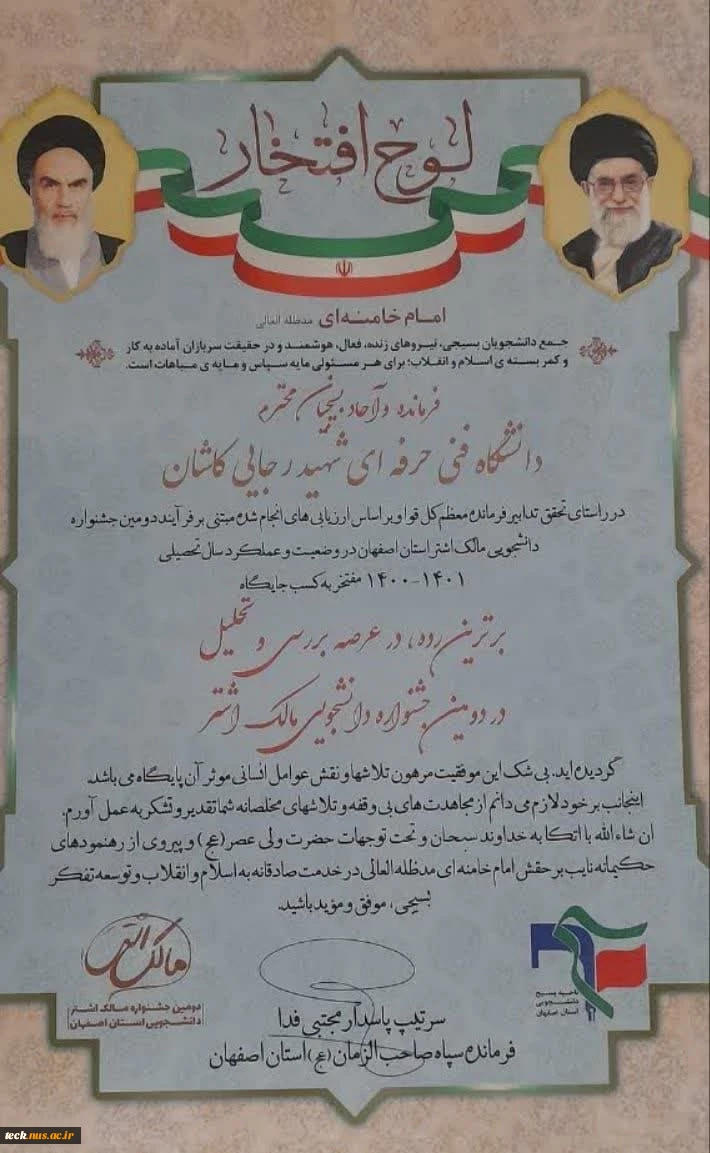 لوح افتخار
امام خامنه‌ای مدظله العالی
جمع دانشجویان بسیجی، نیروهای زنده، فعال، هوشمند و در حقیقت سربازان آماده به کار
و کمر بسته ی اسلام و انقلاب؛ برای هر مسئولی مایه سپاس و مایه ی مباهات است.
فرمانده و آحاد بسیجیان محترم
دانشگاه فنی حرفه ای شهید رجایی کاشان
در راستای تحقق تدابیر فرمانده معظم کل قوا و بر اساس ارزیابی های انجام شده مبتنی بر فرآیند دومین جشنواره
دانشجویی مالک اشتر استان اصفهان در وضعیت و عملکرد سال تحصیلی
۱۴۰۱-۱۴۰۰ مفتخر به کسب جایگاه
برترین رده، در عرصه بررسی و تحلیل
در دومین جشنواره دانشجویی مالک اشتر
گردیده اید. بی شک این موفقیت مرهون تلاشها و نقش عوامل انسانی موثر آن پایگاه می باشد.
اینجانب بر خود لازم می دانم از مجاهدت های بی وقفه و تلاشهای مخلصانه شما تقدیر و تشکر به عمل آورم.
ان شاءالله با اتکا به خداوند سبحان و تحت توجهات حضرت ولی عصر(عج) و پیروی از رهنمودهای
حکیمانه نایب بر حقش امام خامنه ای مدظله العالی در خدمت صادقانه به اسلام و انقلاب و توسعه تفکر
بسیجی، موفق و مؤید باشید.
مالک اشتر
دومین جشنواره مالک اشتر
دانشجویی استان اصفهان
ناحیه بسیج
دانشجویی
استان اصفهان
سرتیپ پاسدار مجتبی فدا
فرمانده سپاه صاحب الزمان(عج) استان اصفهان
teck.nus.ac.ir